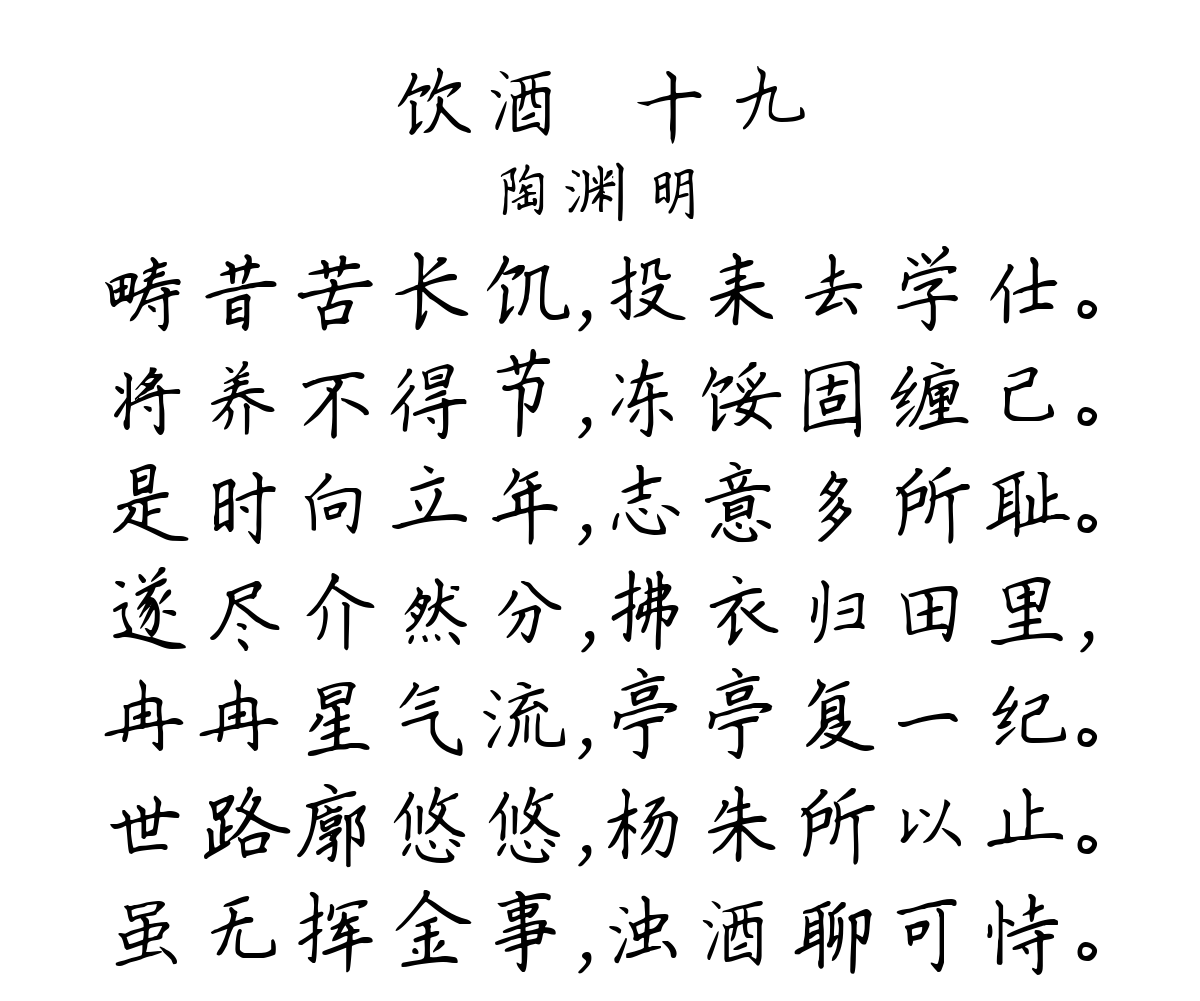 饮酒 十九
陶渊明
畴昔苦长饥,投耒去学仕。
将养不得节,冻馁固缠己。
是时向立年,志意多所耻。
遂尽介然分,拂衣归田里,
冉冉星气流,亭亭复一纪。
世路廓悠悠,杨朱所以止。
虽无挥金事,浊酒聊可恃。